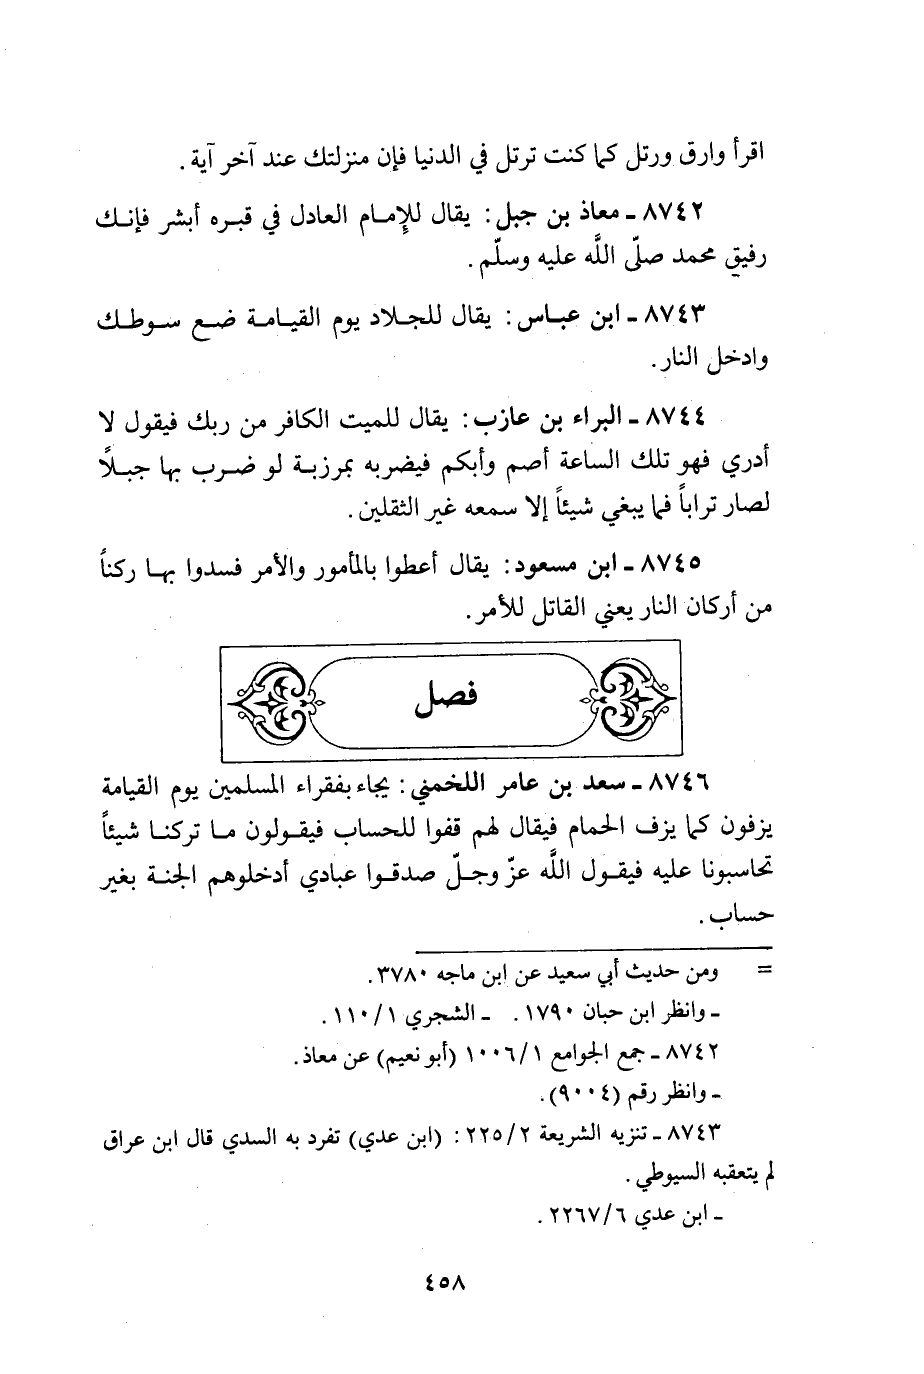 اقرأ وارق ورتل كما كنت ترتل في الدنيا فإن منزلتك عند آخر آية .
٨٧٤٢ ـ معاذ بن جبل : يقال للإمام العادل في قبره أبشر فإنك
رفيق محمد صلّى اللَّه عليه وسلّم .
٨٧٤٣ ـ ابن عباس : يقال للجلاد يوم القيامة ضع سوطك
وادخل النار .
٨٧٤٤ ـ البراء بن عازب : يقال للميت الكافر من ربك فيقول لا
أدري فهو تلك الساعة أصم وأبكم فيضربه بمرزبة لو ضرب بها جبلاً
لصار تراباً فما يبغي شيئاً إلا سمعه غير الثقلين .
٨٧٤٥ ـ ابن مسعود : يقال أعطوا بالمأمور والأمر فسدوا بها ركناً
من أركان النار يعني القاتل للأمر .
فصل
٨٧٤٦ ـ سعد بن عامر اللخمني : يجاء بفقراء المسلمين يوم القيامة
يزفون كما يزف الحمام فيقال لهم قفوا للحساب فيقولون ما تركنا شيئاً
تحاسبونا عليه فيقول اللَّه عزّ وجلّ صدقوا عبادي أدخلوهم الجنة بغير
حساب .
= ومن حديث أبي سعيد عن ابن ماجه ٣٧٨٠ .
ـ وانظر ابن حبان ١٧٩٠ . ـ الشجري ١/ ١١٠ .
٨٧٤٢ ـ جمع الجوامع ١/ ١٠٠٦ (أبو نعيم) عن معاذ .
ـ وانظر رقم (٩٠٠٤) .
٨٧٤٣ ـ تنزيه الشريعة ٢/ ٢٢٥ : (ابن عدي) تفرد به السدي قال ابن عراق
لم يتعقبه السيوطي .
ـ ابن عدي ٦/ ٢٢٦٧ .
٤٥٨